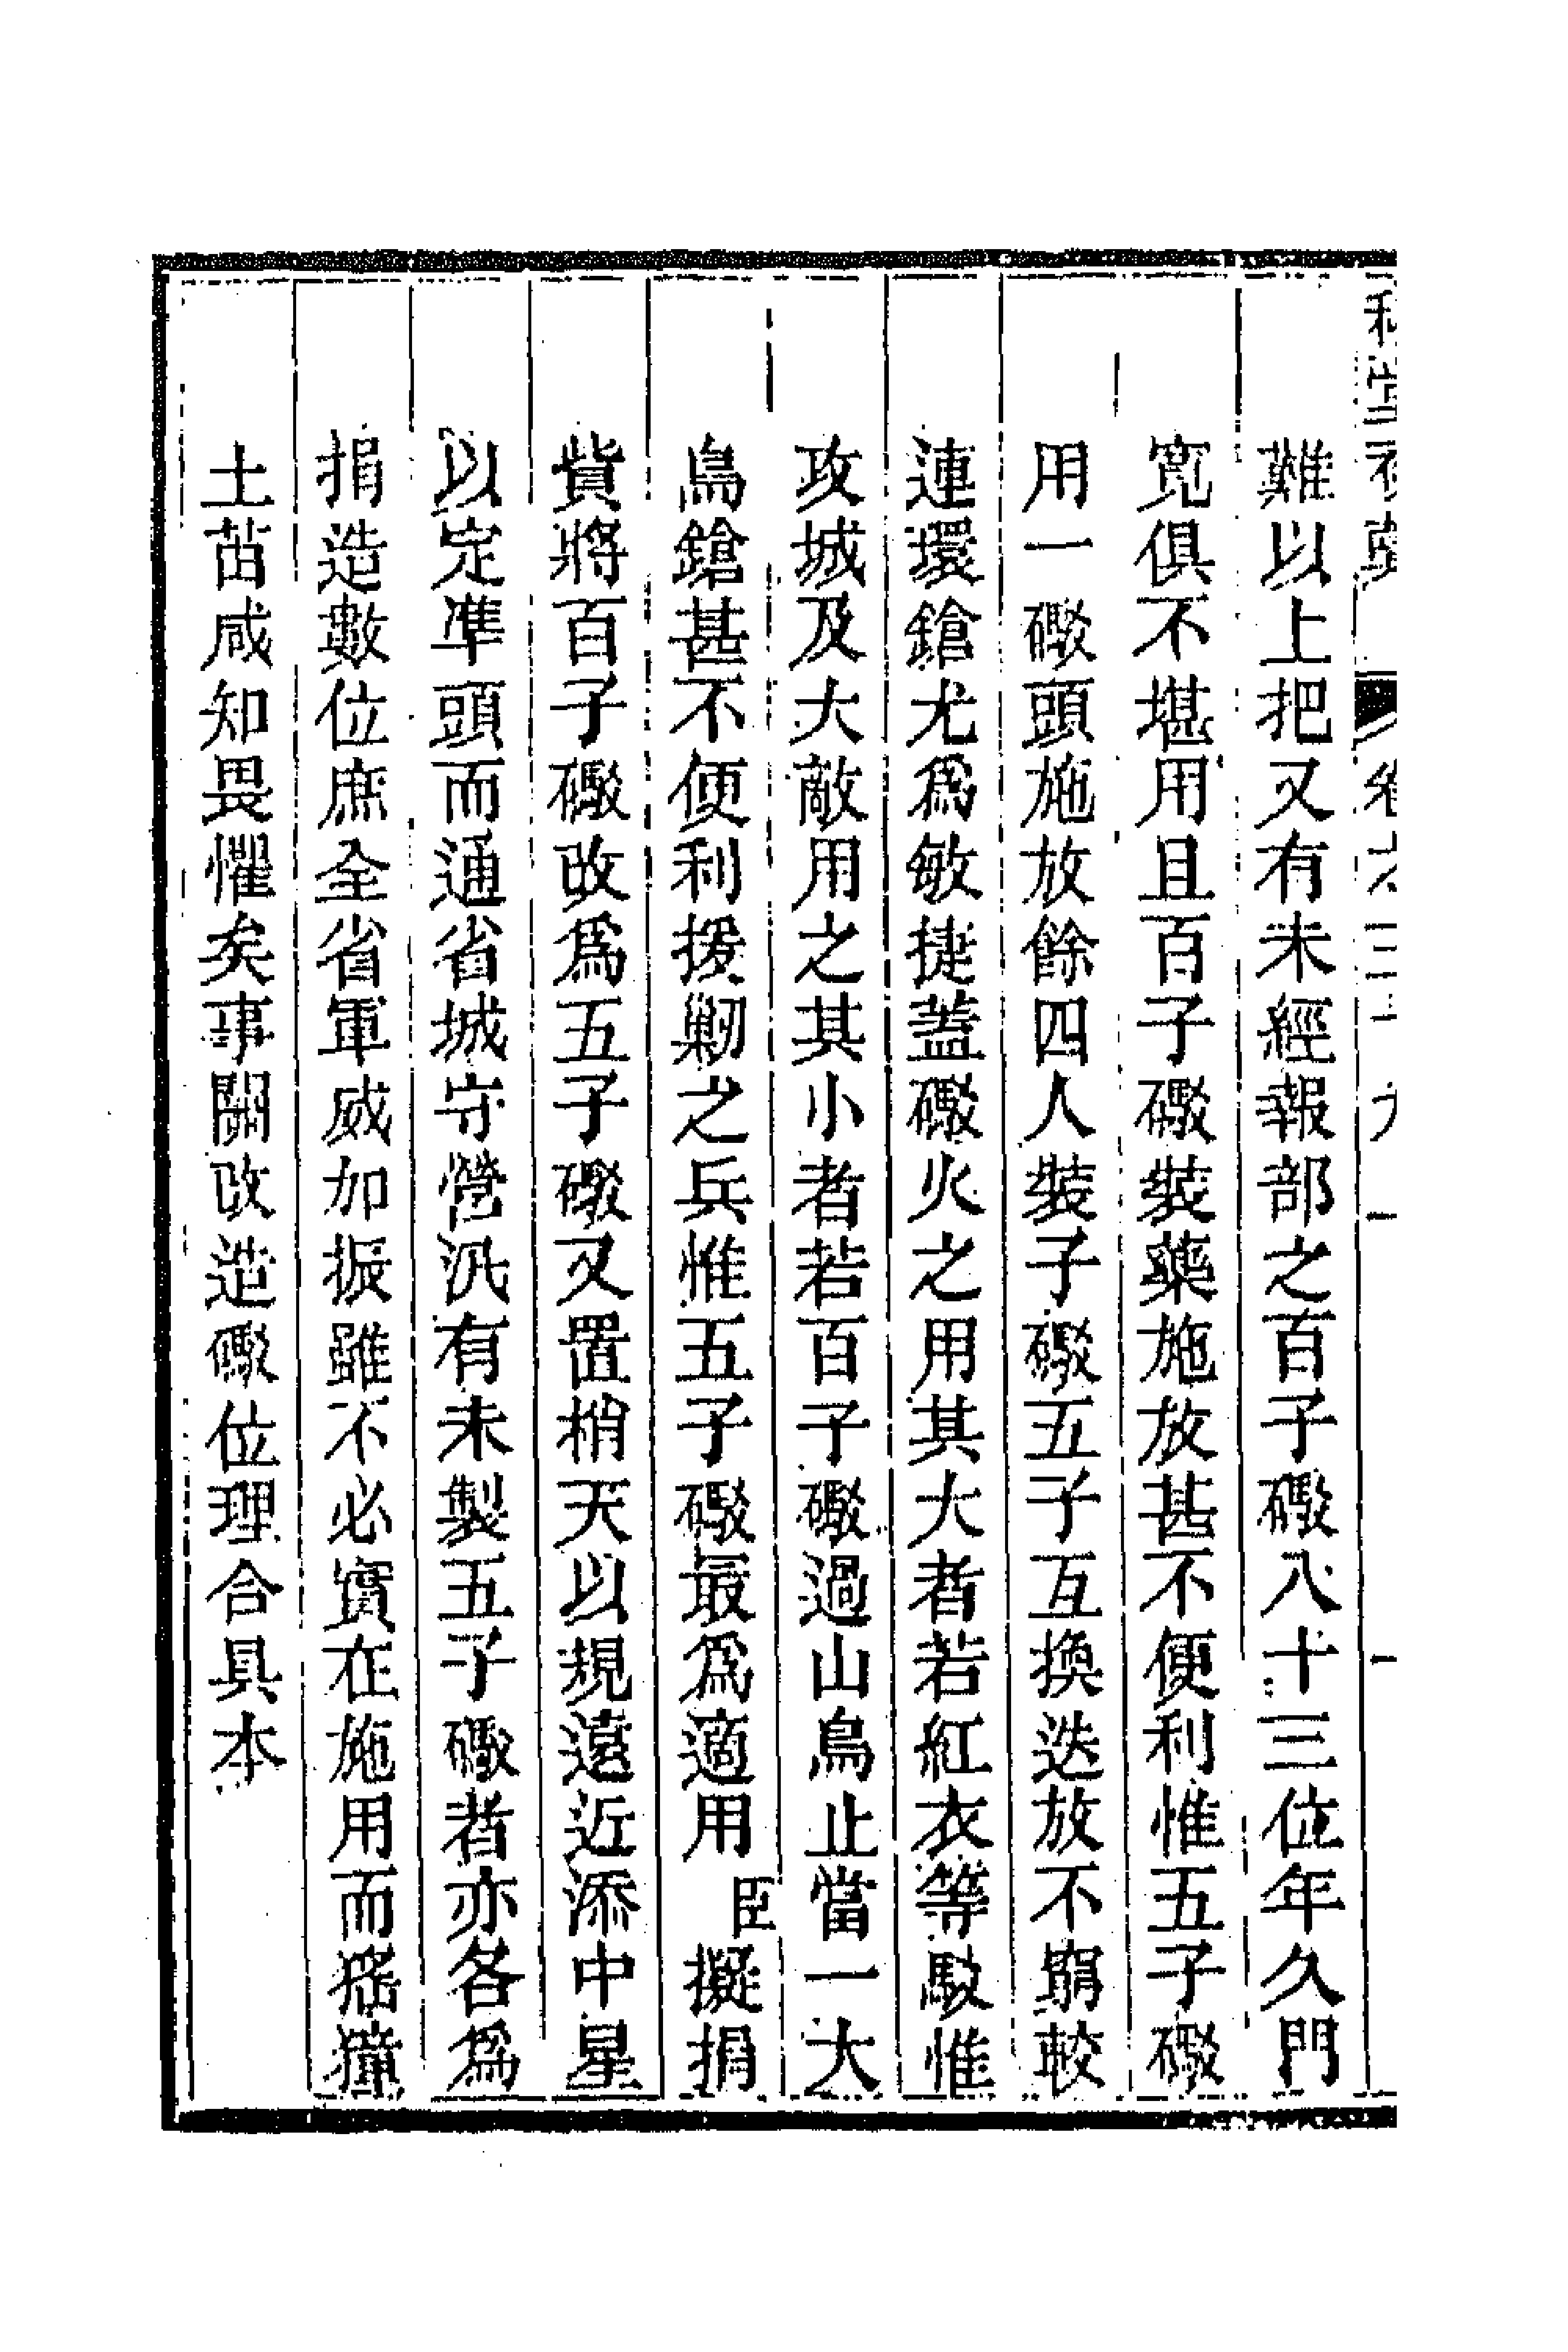 難以上把又有未經報部之百子礮八十三位年久門
寬俱不堪用且百子礮裝藥施放甚不便利惟五子礮
用一礮頭施放餘四人裝子礮五子互換迭放不窮較
連環鎗尤為敏捷蓋礮火之用其大者若紅衣等駁惟
攻城及大敵用之其小者若百子礮過山鳥止當一大
鳥鎗甚不便利援剿之兵惟五子礮最為適用臣擬捐
貲將百子礮改為五子礮又置梢天以規遠近添中星
以定準頭而通省城守營汛有未製五子礮者亦各為
捐造數位庶全省軍威加振雖不必實在施用而猺獞
土苗咸知畏懼矣事關改造礮位理合具本